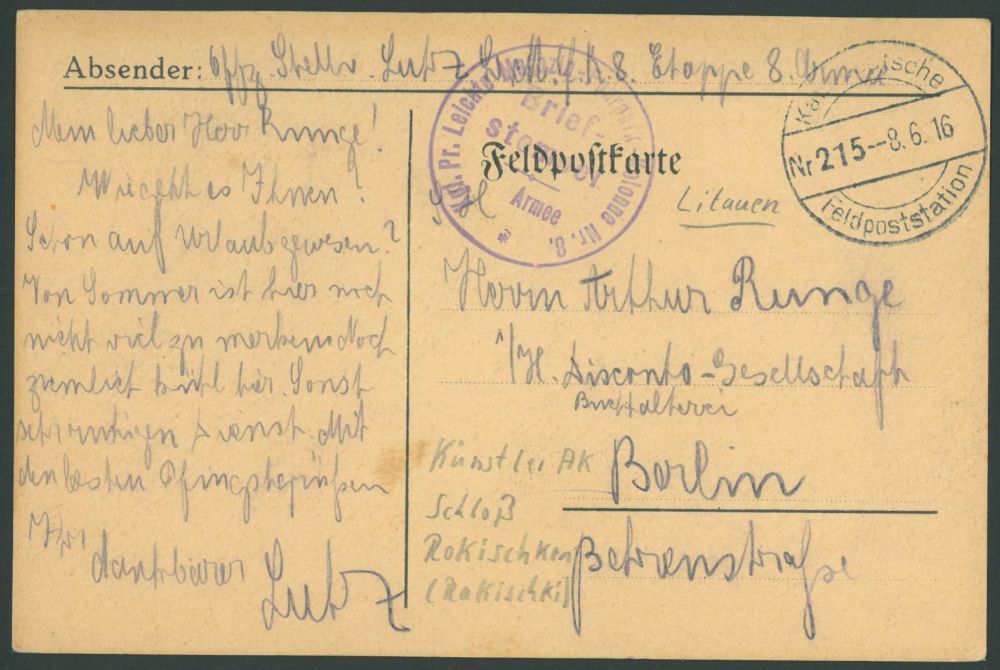 Absender: Offz. Stellv. Lutz 8. Etappe 8. Armee
Mein lieber Herr Runge!
Wie geht es Ihnen?
Schon auf Urlaub gewesen?
Von Sommer ist hier noch
nicht viel zu merken. Noch
ziemlich kühl hier. Sonst
sehr ruhigen Dienst. Mit
den besten Pfingstgrüßen
Ihr
dankbarer
Lutz
Kgl. Pr. Leichte Kolonne Nr. 8.
Brief-
Armee
*
Feldpostkarte
Kaiserische
Nr 215--8.6.16
Feldpoststation
Litauen
Herrn Arthur Runge
i/H. Disconto-Gesellschaft
Buchhalterei
Berlin
Behrenstraße
Künstler AK
Schloß
Rokischken
(Rakischki)